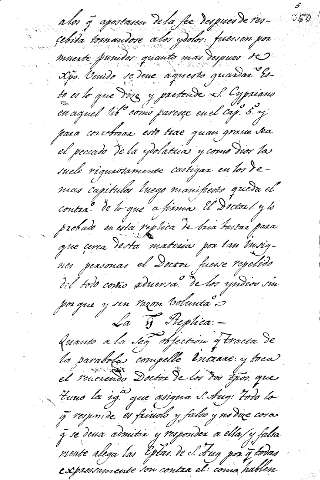 a los q̃ apostasen de la fee despues de res-
cebida tornandose a los ydolos fuessen por
muerte punidos quanto mas despues de
Xpo. Venido se deve aquesto guardar Es-
to es lo que dize y pretende S. Cypriano
en aquel lib.º como paresce en el cap.º 5.º y
para corrobrar esto trae quan grave sea
el peccado de la ydolatria y como dios la
suele rigurosamente castigar en los de-
mas capitulos luego manifiesto queda el
contra.º de lo que afirma el Doctor y lo
probado en esta replica devia bastar para
que çerca desta materia por tan insig-
nes personas el Doctor fuese repelido
del todo como adversa.º de los yndios sin
por que y sin razon volunta.º
La VI Replica.
Quanto a la Seg.ª objection q̃ tracta de
la parabola compelle intrare: y trea
el reverendo Doctor de los dos tpos. que
tuvo la yg.ª que asigna S. Aug. todo lo
q̃ responde es frivolo y falso y no dize cosa
q̃ se deva admitir y responder a ella y falsa
mente alega las Eplas. de S. Aug. por q̃ todas
expresamente son contra el como hablen